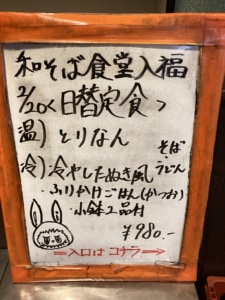 和そば食堂入福
2/20く日替定食>
温)とりなん
そば
冷)冷やしたぬき風
うどん
・ふりかけごはん(かつお)
・小鉢2品付
¥980.-
⇒入口はコチラ⇒